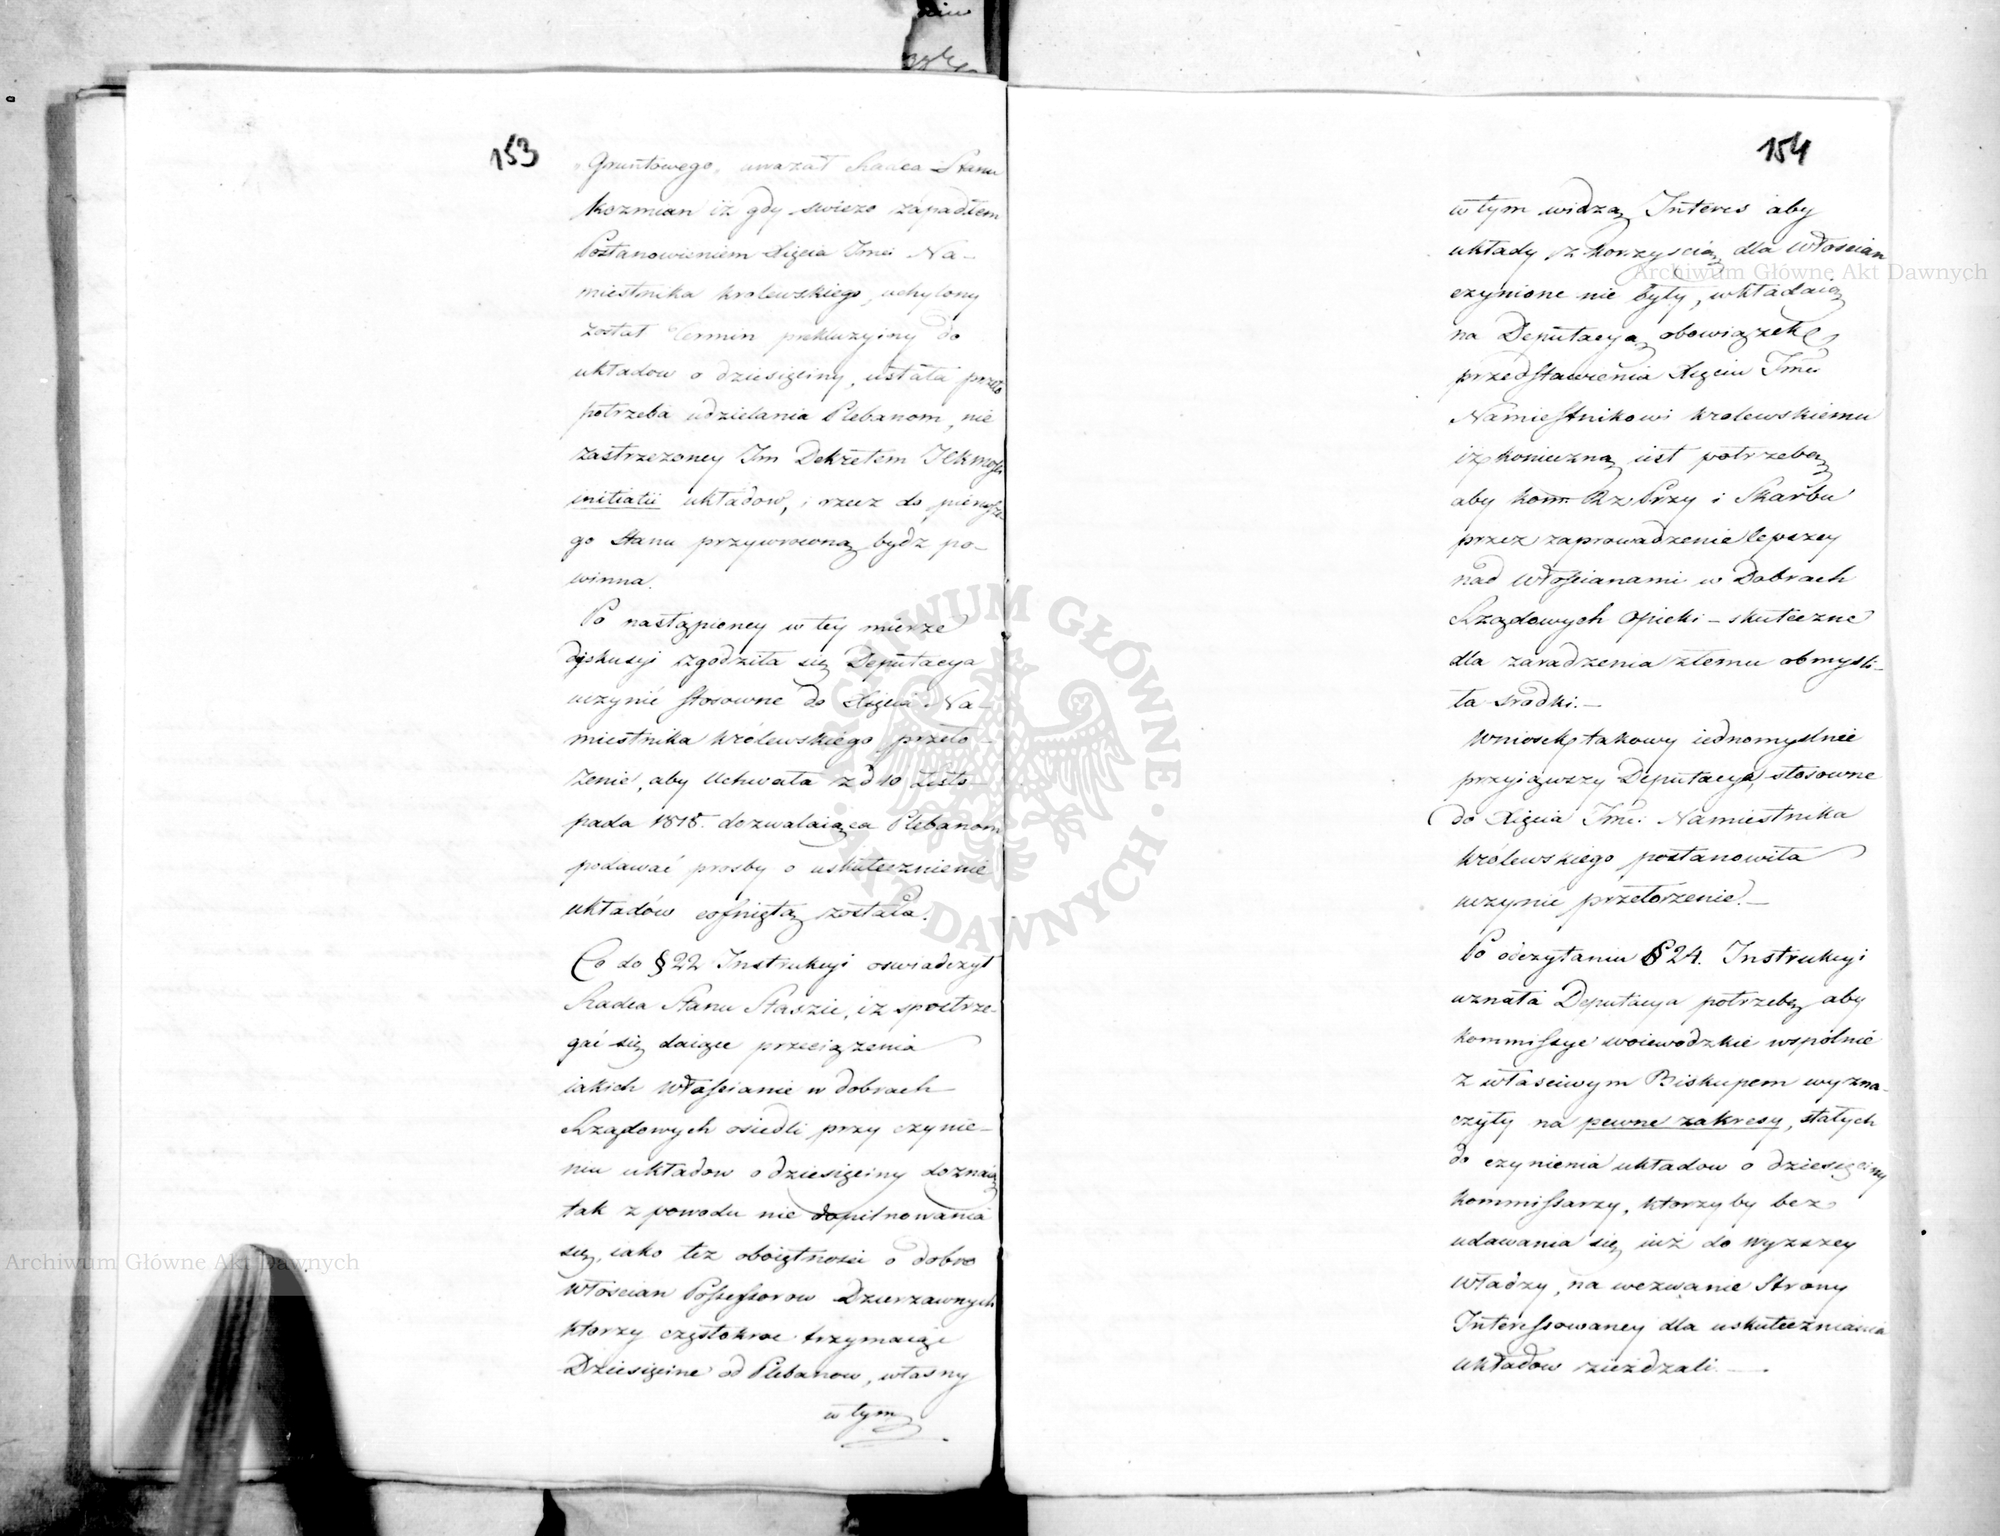 153
Gruntowego, uważał Radca Stanu
Kozmian iż gdy swieżo zapadłem
Postanowieniem Xięcia Jmci Na-
miestnika Krolewskiego, uchylony
został Termin prekluzyiny do
układow o dziesięciny, ustała przeto
potrzeba udzielania Plebanom, nie
zastrzeżoney Im Dekretem JCKMości
initiatii układow, i rzecz do pierwsze-
go Stanu przywrócona bydź po-
winna.
Po nastąpioney w tey mierze
dyskusyi zgodziła się Deputacya
uczynić stosowne do Xięcia Na-
miestnika Królewskiego przeło-
żenie, aby Uchwała z d 10 Listo-
pada 1818. dozwalaiąca Plebanom
podawać prosby o uskutecznienie
układów cofniętą została.
Co do § 22 Instrukcyi oswiadczył
Radca Stanu Staszic, iż spostrze-
gać się daiące przeciążenia
iakich Włoscianie w dobrach
Rządowych osiedli przy czynie-
niu układow o dziesięciny doznaią
tak z powodu nie dopilnowania
się, iako też oboiętnosci o dobro
Włoscian Possessorow Dzierzawnych
ktorzy częstokroc trzymaiąc
Dziesięcine od Plebanow, własny
w tym
154
w tym widzą Interes aby
układy z korzyscią dla Włoscian
czynione nie były, wkładaią
na Deputacyą obowiązek
przedstawienia Xięciu Jmci
Namiestnikowi Krolewskiemu
iż konieczną iest potrzebą
aby Kom: Rz: Przy i Skarbu
przez zaprowadzenie lepszey
nad Włoscianami w Dobrach
Rządowych opieki – skuteczne
dla zaradzenia złemu obmysli-
ła srodki. –
Wniosek takowy iednomyslnie
przyiąwszy Deputacya stosowne
do Xięcia Jmci: Namiestnika
Królewskiego postanowiła
uczynić przełożenie. –
Po odczytaniu § 24. Instrukcyi
uznała Deputacya potrzebę aby
Kommissye woiewodzkie wspólnie
z własciwym Biskupem wyzna-
czyły na pewne zakresy, stałych
do czynienia układow o dziesięciny
Kommissarzy, ktorzy by bez
udawania się iuż do wyzszey
Władzy, na wezwanie Strony
Interessowaney dla uskuteczniania
układow zieżdzali. –
Archiwum Główne Akt Dawnych
Archiwum Główne Akt Dawnych
ARCHIWUM GŁÓWNE · AKT DAWNYCH ·